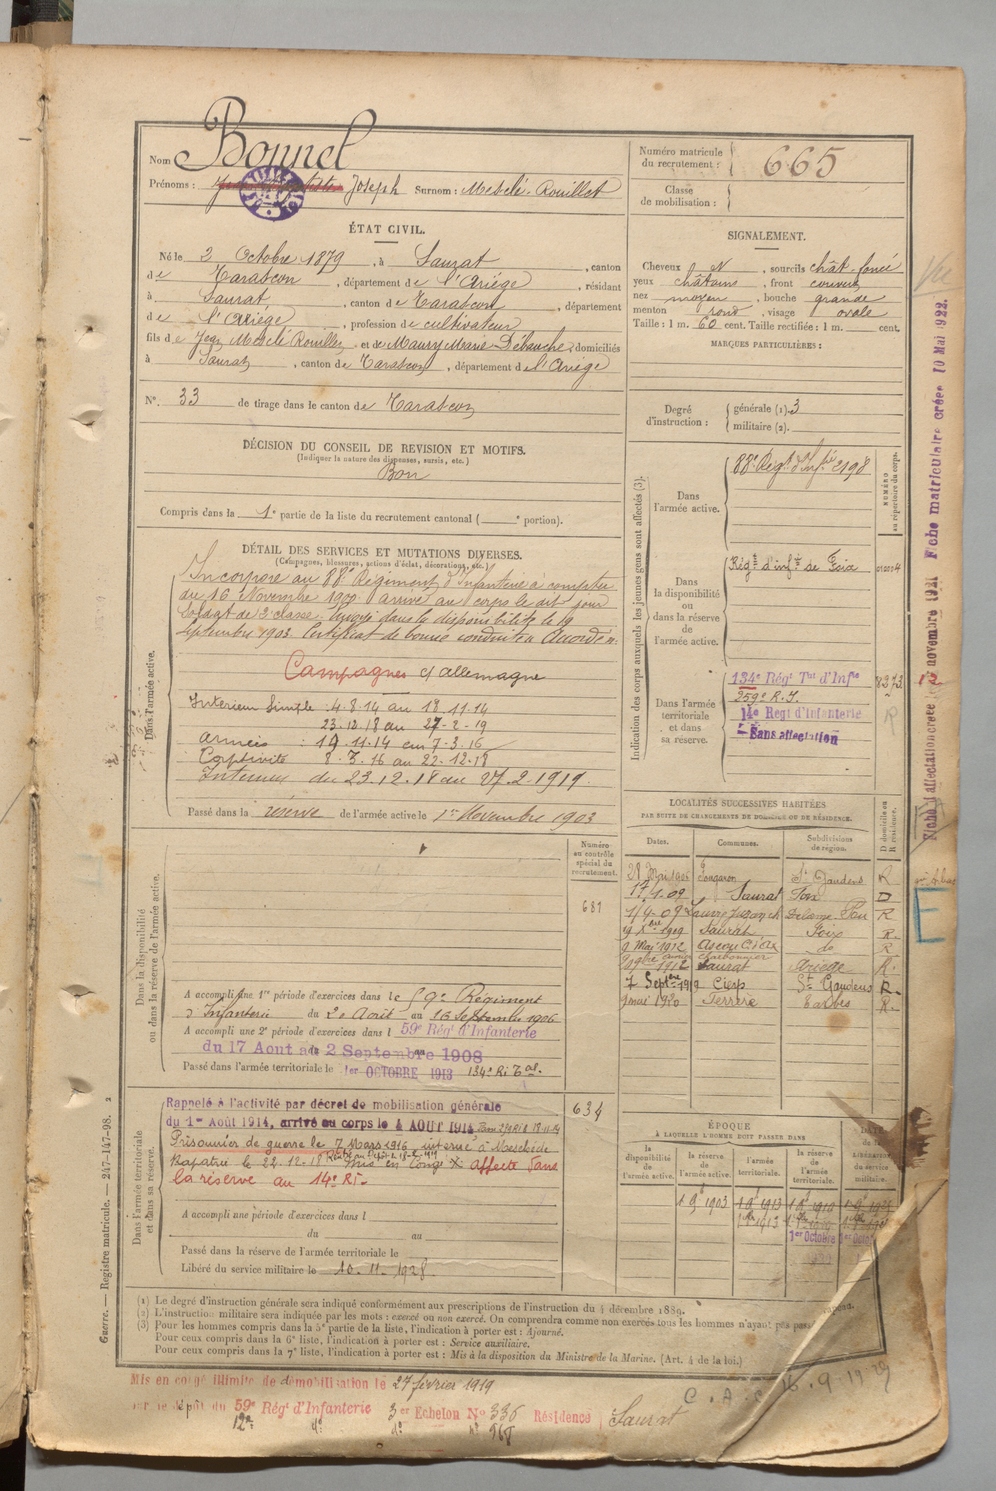 Nom Bonnel
Prénoms : Joseph Surnom : Mesclé-Rouillet
Numéro matricule du recrutement : 665
Classe de mobilisation :
ÉTAT CIVIL.
Né le 2 Octobre 1879, à Saurat, canton
de Tarascon, département de l'Ariège, résidant
à Saurat, canton de Tarascon, département
de l'Ariège, profession de cultivateur
fils de Jean Mesclé Rouillet et de Maury Marie Débauche, domiciliés
à Saurat, canton de Tarascon, département de l'Ariège
N° 33 de tirage dans le canton de Tarascon
SIGNALEMENT.
Cheveux N, sourcils chât-foncé
yeux châtains, front couvert
nez moyen, bouche grande
menton rond, visage ovale
Taille : 1 m. 60 cent. Taille rectifiée : 1 m. cent.
MARQUES PARTICULIÈRES :
Degré d'instruction : générale (1). 3
militaire (2).
DÉCISION DU CONSEIL DE REVISION ET MOTIFS.
(Indiquer la nature des dispenses, sursis, etc.)
Bon
Compris dans la 1e partie de la liste du recrutement cantonal ( e portion).
DÉTAIL DES SERVICES ET MUTATIONS DIVERSES.
(Campagnes, blessures, actions d'éclat, décorations, etc.)
Incorporé au 88e Régiment d'Infanterie à compter
du 16 Novembre 1900 arrivé au corps le dit jour
soldat de 2e classe. Envoyé dans la disponibilité le 19
Septembre 1903. Certificat de bonne conduite Accordé.
Campagnes c/ allemagne
Intérieur Simple : 4.8.14 au 18.11.14
23.12.18 au 27-2-19
armées : 19.11.14 au 7-3-16
Captivité 8-3.16 au 22-12-18
Intérieur du 23.12.18 au 27.2-1919.
Dans l'armée active.
Passé dans la réserve de l'armée active le 1er Novembre 1903
Indication des corps auxquels les jeunes gens sont affectés (3).
NUMÉRO au répertoire du corps.
Dans l'armée active.
88e Régt d'Infie 2198
Dans la disponibilité ou dans la réserve de l'armée active.
Régt d'infie de Foix
Dans l'armée territoriale et dans sa réserve.
134e Régt Tal d'Infie 8273
259e R.I.
14e Regt d'infanterie
Sans affectation
LOCALITÉS SUCCESSIVES HABITÉES
PAR SUITE DE CHANGEMENTS DE DOMICILE OU DE RÉSIDENCE.
Dates. Communes. Subdivisions de région. D domicile ou R résidence.
28 Mai 1906 Fougaron St Gaudens R
17.1.09 Saurat Foix D
Saurat Foix R.
9 Mai 1912 Ascou do R
1912 Saurat Ariège R.
7 Septbre 1919 Cierp St Gaudens R.
mai 1920 Ferrère Tarbes R.
Dans la disponibilité ou dans la réserve de l'armée active.
Numéro au contrôle spécial du recrutement.
681
A accompli une 1re période d'exercices dans le 59e Régiment
d'Infanterie du 20 Août au 16 Septembre 1906
A accompli une 2e période d'exercices dans l 59e Régt d'Infanterie
du 17 Aout au 2 Septembre 1908
Passé dans l'armée territoriale le 1er OCTOBRE 1913 134e Ri Tal.
Dans l'armée territoriale et dans sa réserve.
634
Rappelé à l'activité par décret de mobilisation générale
du 1er Août 1914, arrivé au corps le 4 AOUT 1914
Prisonnier de guerre le 7 Mars 1916 interné à Meschede
Rapatrié le 22-12-18 mis en congé affecté dans
la réserve au 14e RI-
A accompli une période d'exercices dans l
du au
Passé dans la réserve de l'armée territoriale le
Libéré du service militaire le 10.11.1928.
ÉPOQUE
À LAQUELLE L'HOMME DOIT PASSER DANS
la disponibilité de l'armée active. la réserve de l'armée active. l'armée territoriale. la réserve de l'armée territoriale. DATE de la LIBÉRATION du service militaire.
(1) Le degré d'instruction générale sera indiqué conformément aux prescriptions de l'instruction du 4 décembre 1889.
(2) L'instruction militaire sera indiquée par les mots : exercé ou non exercé. On comprendra comme non exercés tous les hommes n'ayant pas
(3) Pour les hommes compris dans la 5e partie de la liste, l'indication à porter est : Ajourné.
Pour ceux compris dans la 6e liste, l'indication à porter est : Service auxiliaire.
Pour ceux compris dans la 7e liste, l'indication à porter est : Mis à la disposition du Ministre de la Marine. (Art. 4 de la loi.)
Mis en congé illimité de démobilisation le 27 février 1919
dépôt du 59e Régt d'Infanterie 3er Echelon No 336 Résidence Saurat
Guerre. — Registre matricule. — 247-147-98. 2
Fiche matriculaire créée 10 Mai 1922.
Fiche d'affectation créée 12 novembre 1921